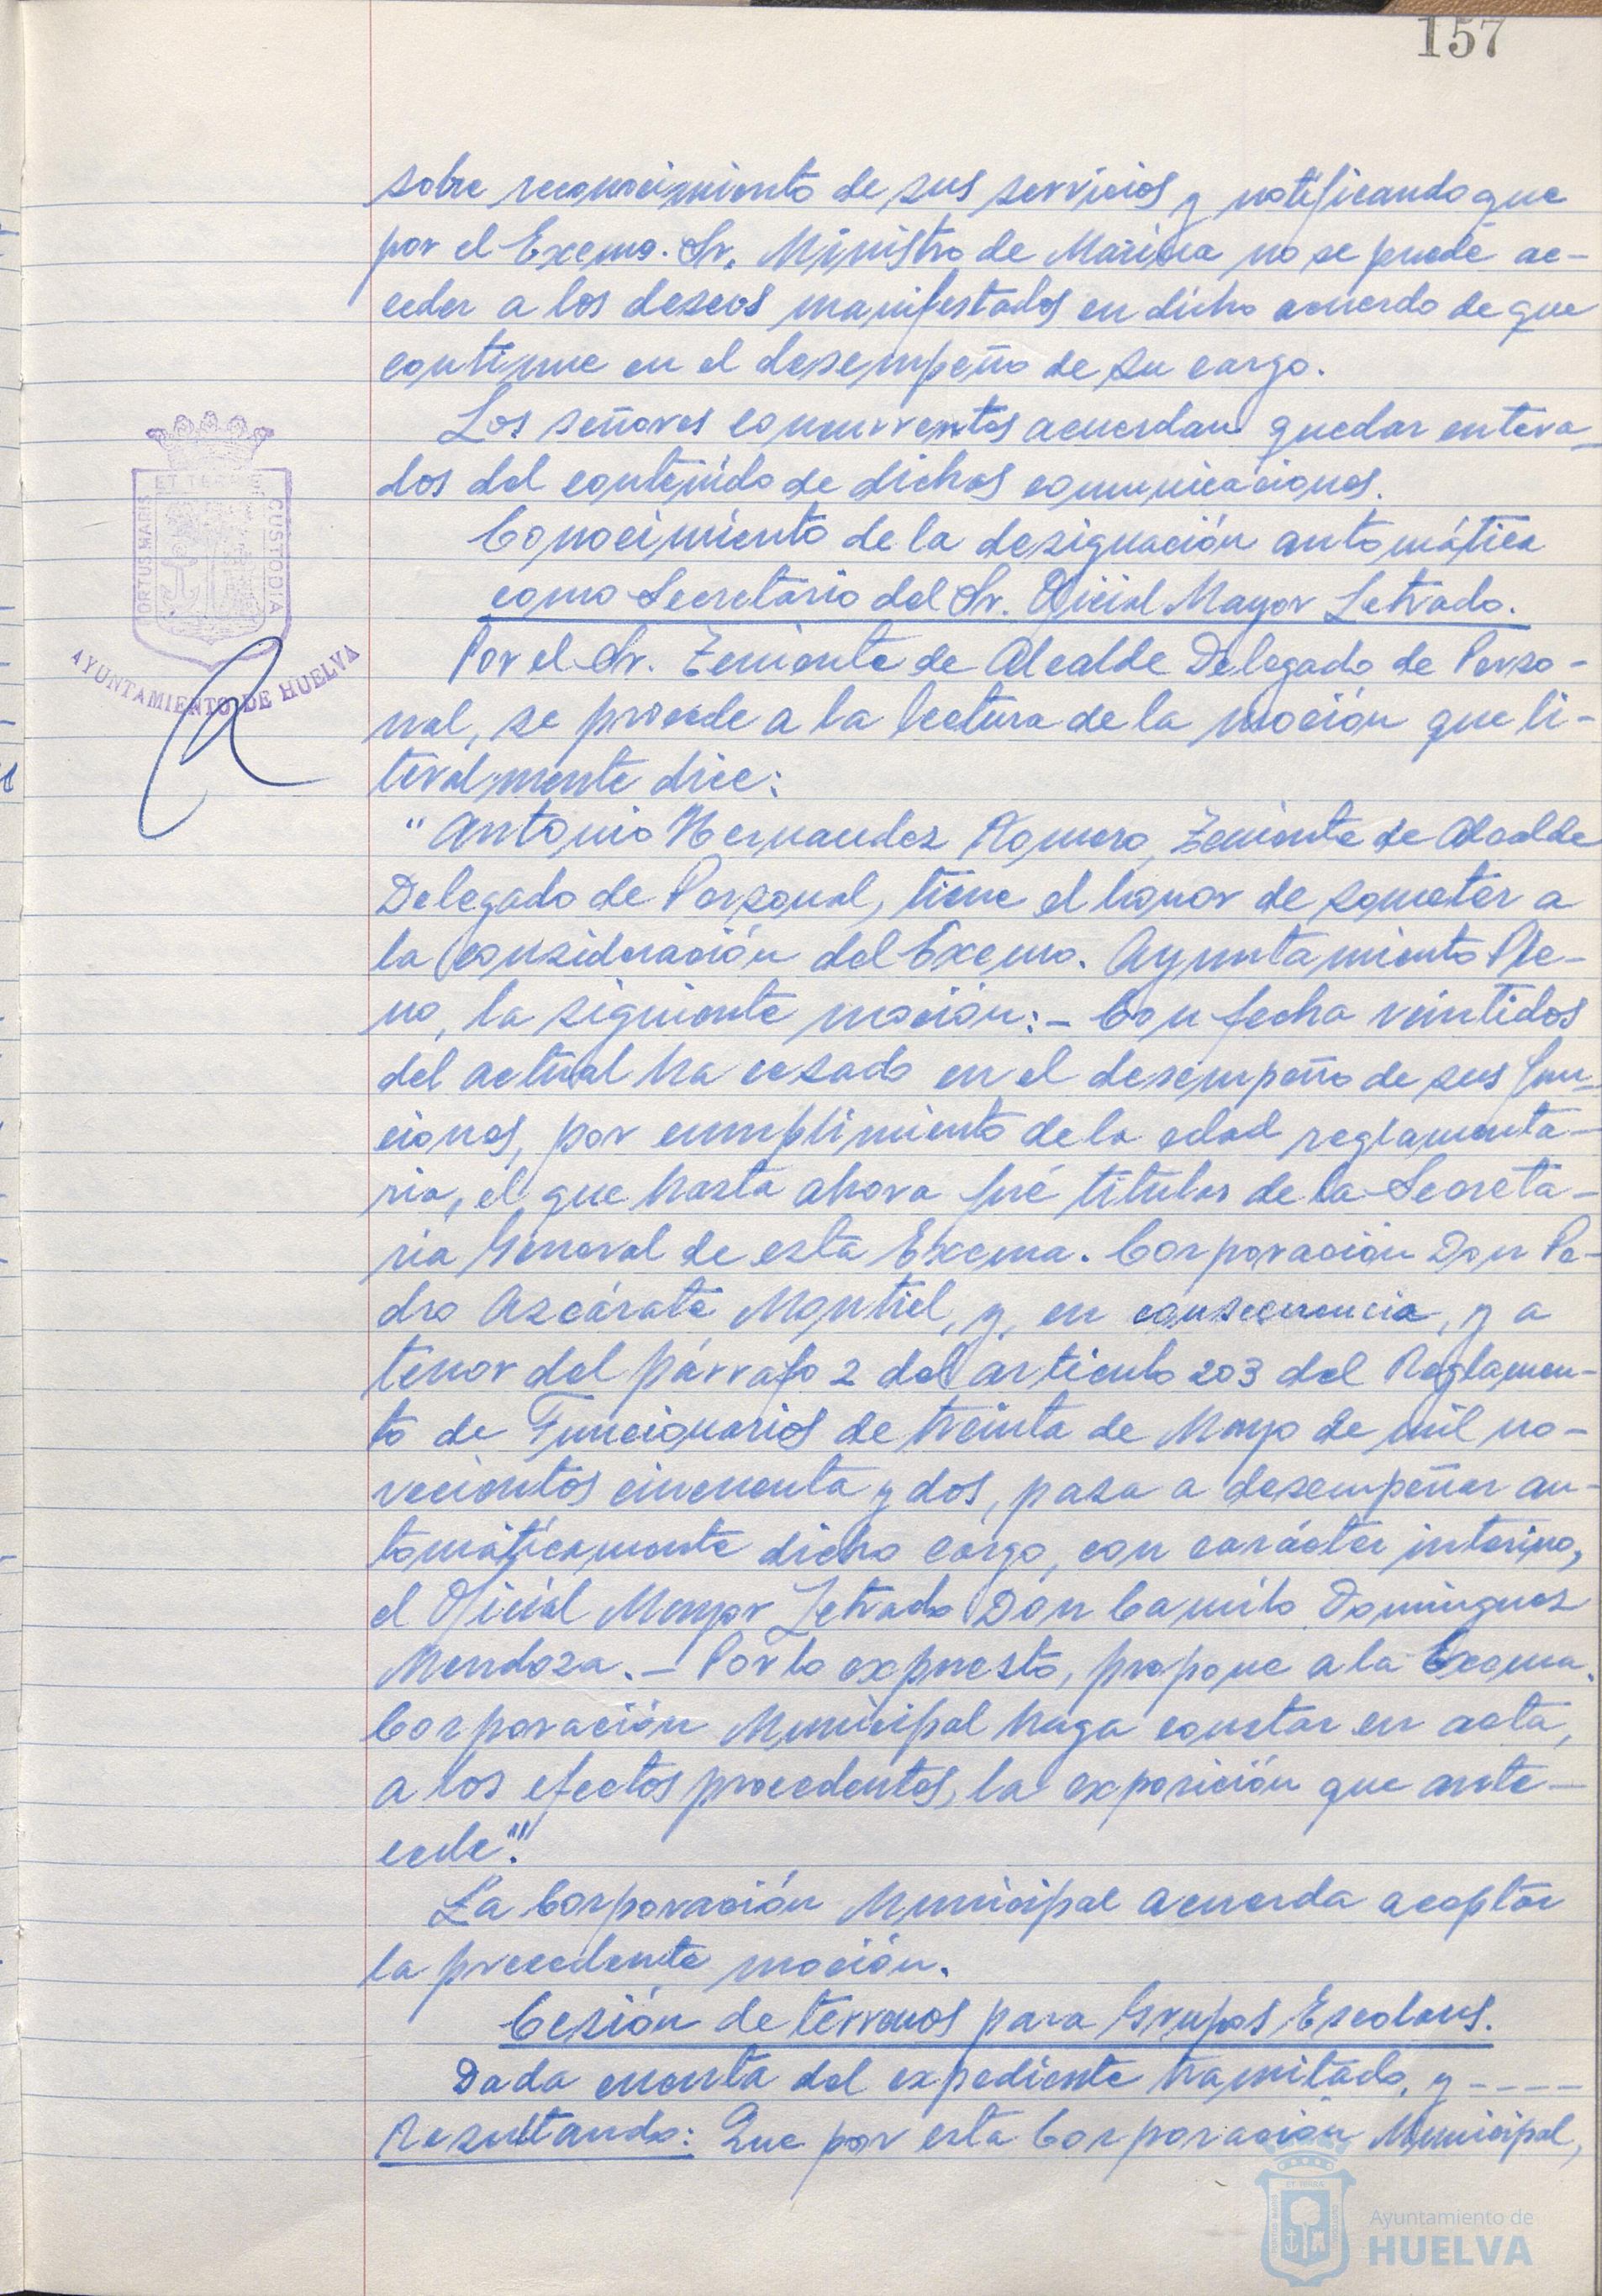 157
sobre reconocimiento de sus servicios y notificando que
por el Excmo. Sr. Ministro de Marina no se puede ac-
ceder a los deseos manifestados en dicho acuerdo de que
continue en el desempeño de su cargo.
Los señores concurrentes acuerdan quedar entera-
dos del contenido de dichas comunicaciones.
Conocimiento de la designación automática
como Secretario del Sr. Oficial Mayor Letrado.
Por el Sr. Teniente de Alcalde Delegado de Perso-
nal, se procede a la lectura de la moción que li-
teralmente dice:
"Antonio Hernandez Romero, Teniente de Alcalde
Delegado de Personal, tiene el honor de someter a
la consideración del Excmo. Ayuntamiento Ple-
no, la siguiente moción:- Con fecha veintidos
del actual ha cesado en el desempeño de sus fun-
ciones, por cumplimiento de la edad reglamenta-
ria, el que hasta ahora fué titular de la Secreta-
ria General de esta Excma. Corporación Don Pe-
dro Azcárate Montiel, y, en consecuencia, y a
tenor del párrafo 2 del articulo 203 del Reglamen-
to de Funcionarios de treinta de Mayo de mil no-
vecientos cincuenta y dos, pasa a desempeñar au-
tomáticamente dicho cargo, con carácter interino,
el Oficial Mayor Letrado Don Camilo Dominguez
Mendoza.- Por lo expuesto, propone a la Excma.
Corporación Municipal haga constar en acta,
a los efectos procedentes, la exposición que ante-
cede".
La Corporación Municipal acuerda aceptar
la precedente moción.
Cesión de terrenos para Grupos Escolares.
Dada cuenta del expediente tramitado, y ----
Resultando: Que por esta Corporación Municipal,
PORTUS MARIS
ET TERRE
CUSTODIA
AYUNTAMIENTO DE HUELVA
Ayuntamiento de
HUELVA